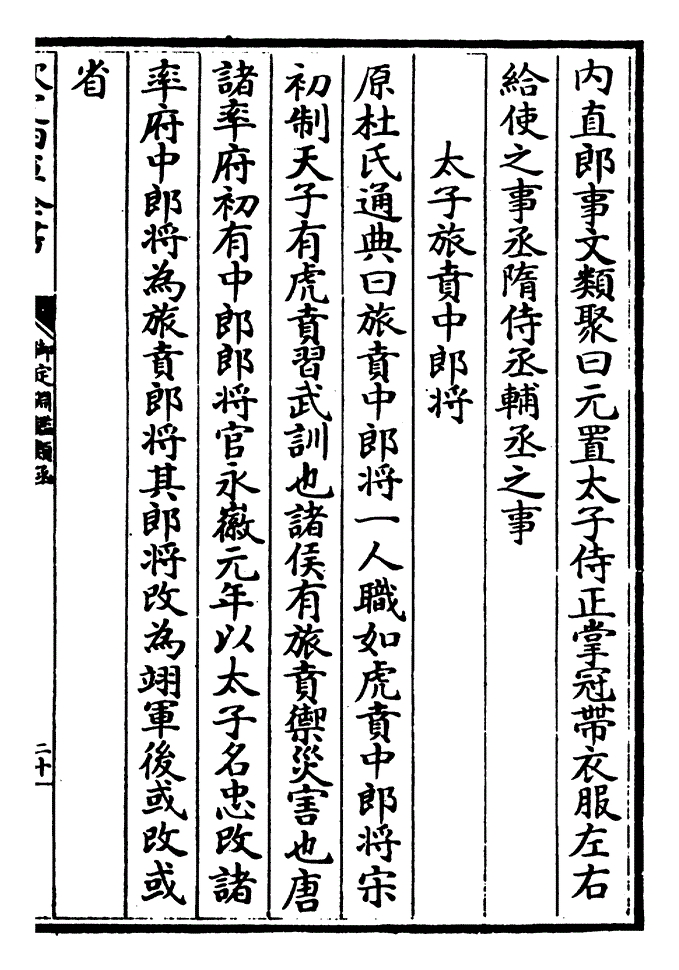 内直郎事文類聚曰元置太子侍正掌冠帶衣服左右
給使之事丞隋侍丞輔丞之事
太子旅賁中郎将
原杜氏通典曰旅賁中郎将一人職如虎賁中郎将宋
初制天子有虎賁習武訓也諸侯有旅賁禦災害也唐
諸率府初有中郎郎将官永徽元年以太子名忠改諸
率府中郎将為旅賁郎将其郎将改為翊軍後或改或
省
御定淵鑑類函
二十